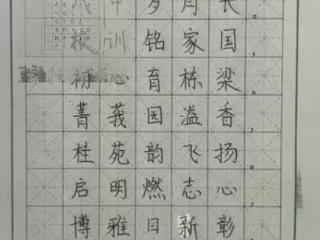 岁月长，
训铭家国。
初心育栋梁，
菁莪园溢香。
桂苑韵飞扬，
启明燃志心，
博雅日新彰